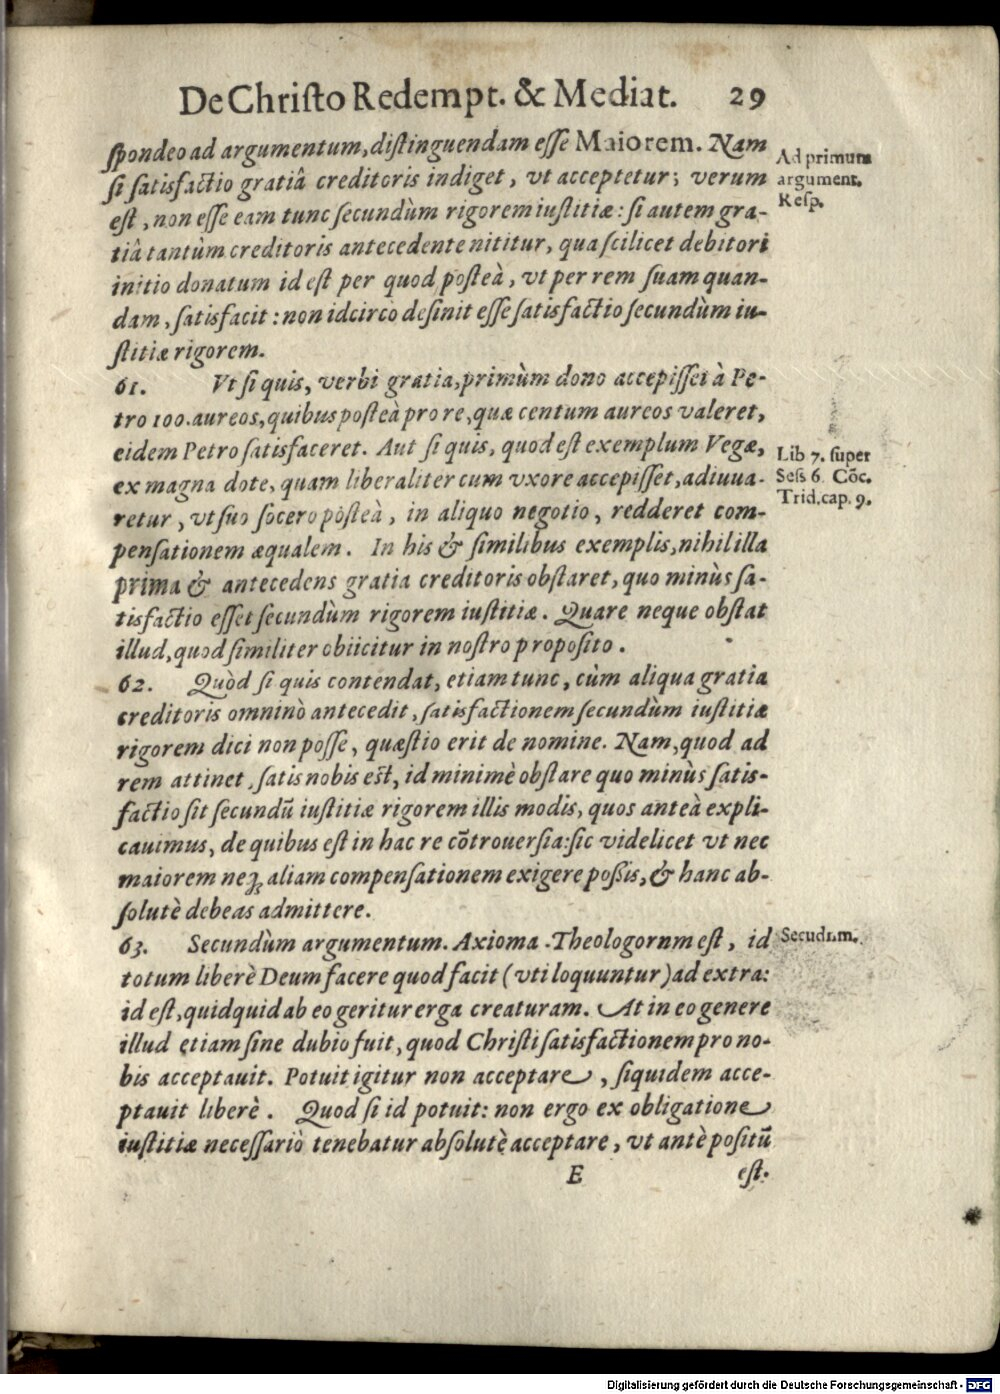 De Chriſto Redempt. & Mediat. 29
ſpondeo ad argumentum, diſtinguendam eſſe Maiorem. Nam
Ad primum
ſi ſatisfactio gratiâ creditoris indiget, vt acceptetur; verum
argument.
eſt, non eſſe eam tunc ſecundùm rigorem iuſtitiæ: ſi autem gra-
Reſp.
tiâ tantùm creditoris antecedente nititur, qua ſcilicet debitori
initio donatum id eſt per quod poſteà, vt per rem ſuam quan-
dam, ſatisfacit: non idcirco deſinit eſſe ſatisfactio ſecundùm iu-
ſtitiæ rigorem.
61. Vt ſi quis, verbi gratia, primùm dono accepiſſet à Pe-
tro 100. aureos, quibus poſteà pro re, quæ centum aureos valeret,
eidem Petro ſatisfaceret. Aut ſi quis, quod eſt exemplum Vegæ,
Lib 7. ſuper
ex magna dote, quam liberaliter cum vxore accepiſſet, adiuua-
Seſs 6. Cōc.
retur, vt ſuo ſocero pòſteà, in aliquo negotio, redderet com-
Trid. cap. 9.
penſationem æqualem. In his & ſimilibus exemplis, nihil illa
prima & antecedens gratia creditoris obſtaret, quo minùs ſa-
tisfactio eſſet ſecundùm rigorem iuſtitiæ. Quare neque obſtat
illud, quod ſimiliter obiicitur in noſtro propoſito.
62. Quòd ſi quis contendat, etiam tunc, cùm aliqua gratia
creditoris omninò antecedit, ſatisfactionem ſecundùm iuſtitiæ
rigorem dici non poſſe, quæſtio erit de nomine. Nam, quod ad
rem attinet, ſatis nobis eſt, id minimè obſtare quo minùs ſatis-
factio ſit ſecundū iuſtitiæ rigorem illis modis, quos anteà expli-
cauimus, de quibus eſt in hac re cōtrouerſia: ſic videlicet vt nec
maiorem neqꝫ aliam compenſationem exigere poſsis, & hanc ab-
ſolutè debeas admittere.
63. Secundùm argumentum. Axioma Theologornm eſt, id
Secudum.
totum liberè Deum facere quod facit (vti loquuntur) ad extra:
id eſt, quidquid ab eo geritur erga creaturam. At in eo genere
illud etiam ſine dubio fuit, quod Chriſti ſatisfactionem pro no-
bis acceptauit. Potuit igitur non acceptare, ſiquidem acce-
ptauit liberè. Quod ſi id potuit: non ergo ex obligatione
iuſtitiæ neceſſariò tenebatur abſolutè acceptare, vt antè poſitū
E eſt.
Digitalisierung gefördert durch die Deutsche Forschungsgemeinschaft - DFG